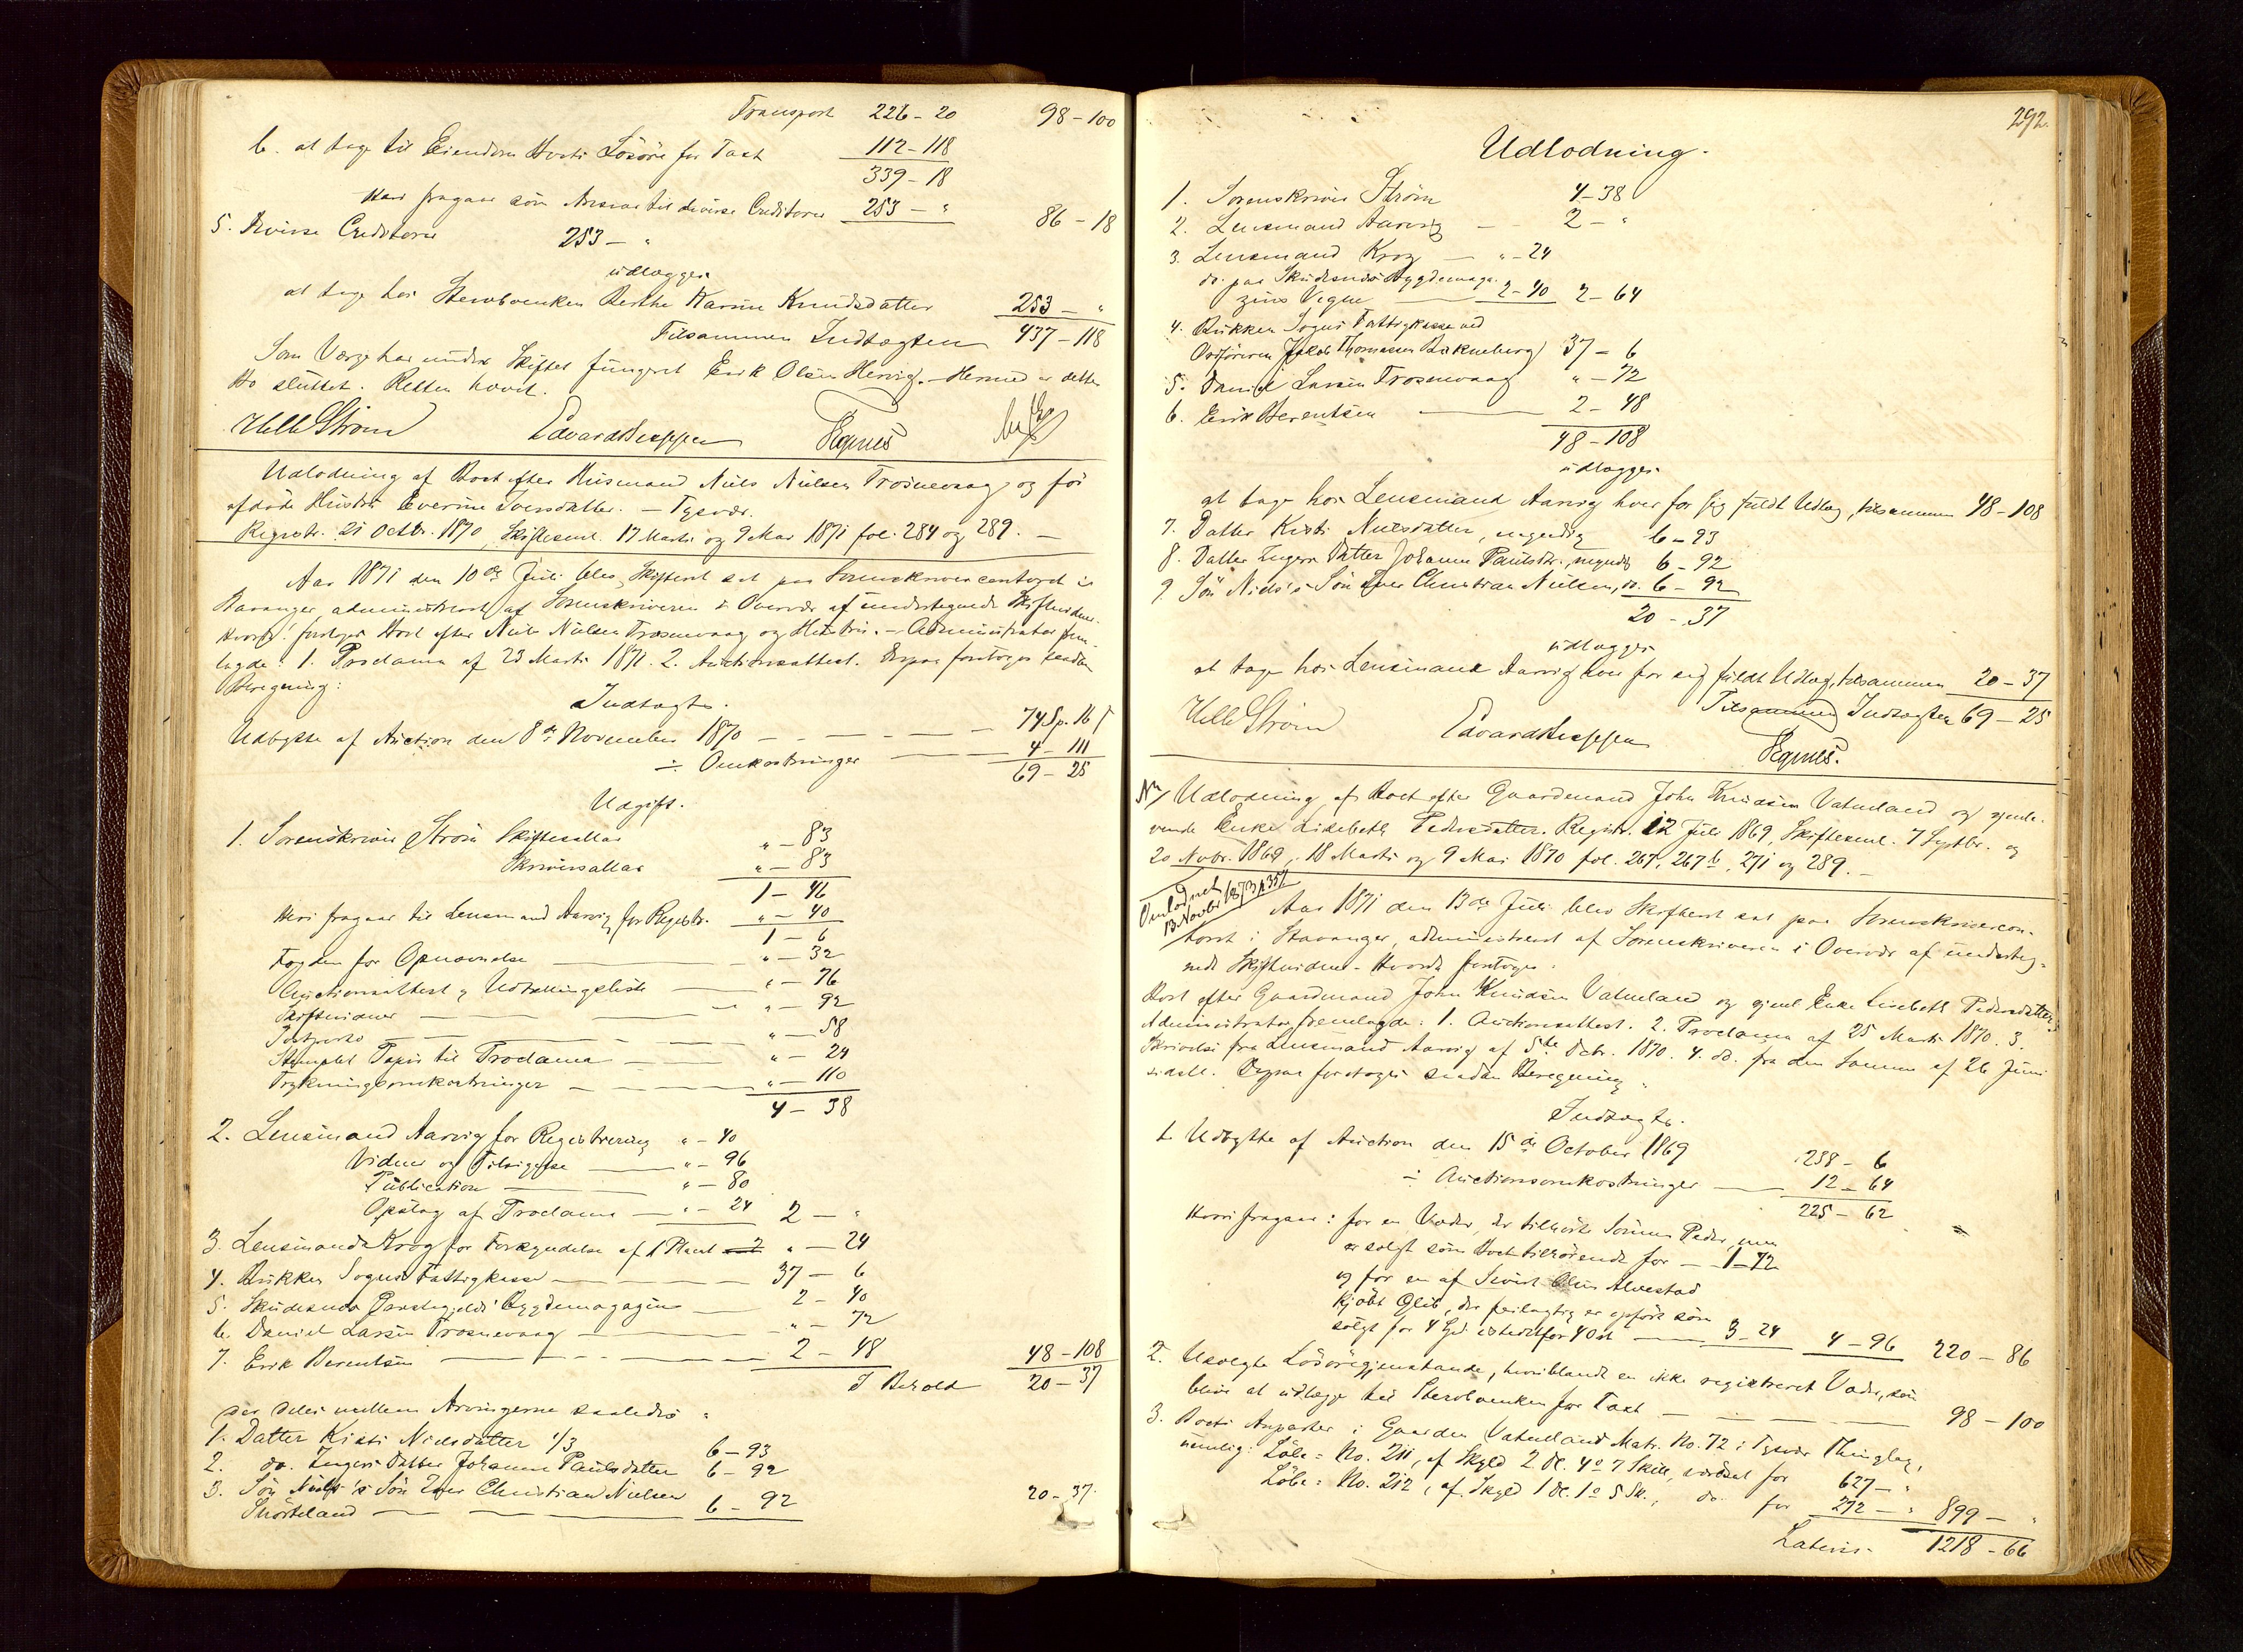 Transport 226-20 98-100
b. at tage til Eiendom Boets Løsøre for Taxt 112-118
339-18
Heri fragaar som Ansvar til diverse Creditorer 253 - " 86-18
5. Diverse Creditorer 253 - "
udlægges
at tage hos Stervboenken Berthe Karine Knudsdatter 253 - "
Tilsammen Indtægten 437-118
Som Værge har under Skiftet fungeret Erik Olsen Hervig. - Hermed er dette
Bo sluttet. Retten hævet.
Helle Strøm Edvard Jeppesen Egnes
Udlodning af Boet efter Huusmand Niels Nielsen Trosnevaag og før
afdøde Hustru Everine Iversdatter. - Tysvær.
Registr. 21 Octbr. 1870, Skiftesaml. 17 Marts og 9 Mai 1871 fol. 284 og 289. -
Aar 1871 den 10de Juli blev Skifteret sat paa Sorenskrivercontoret i
Stavanger, administreret af Sorenskriveren i Overvær af undertegnede Skiftevidner.
Hvorda foretoges Boet efter Niels Nielsen Trosnevaag og Hustru. - Administrator frem-
lagde: 1. Proclama af 23 Marts 1871. 2. Auctionsattest. Derpaa foretoges saadan
Beregning:
Indtægt.
Udbytte af Auction den 8de November 1870 - - - - - 74 Sp. 16 ß
÷ Omkostninger 4-111
69-25
Udgift.
1. Sorenskriver Strøm Skiftesallar " - 83
Skriversallar " - 83
1 - 46
Heri fragaar til Lensmand Aarvig for Registr. " - 40
1 - 6
Fogden for Opnævnelse " - 32
Auctionsattest & Udtællingsliste " - 76
Skiftevidner " - 92
Postporto " - 58
Stemplet Papir til Proclama " - 24
Trykningsomkostninger " - 110
4 - 38
2. Lensmand Aarvig for Registrering " - 40
Vidner og Tilsigelse " - 96
Publication " - 80
Opslag af Proclama " - 24 2 - "
3. Lensmand Krog for Forkyndelse af 1 Placat " - 24
4. Bukken Sogns Fattigkasse 37 - 6
5. Skudesnes Præstegjelds Bygdemagazin 2 - 40
6. Daniel Larsen Trosnevaag " - 72
7. Erik Berentsen 2 - 48 48-108
I Behold 20-37
der deles mellem Arvingerne saaledes:
1. Datter Kisti Nielsdatter 1/3 6-93
2. do. Ingers Datter Johanne Paulsdatter 6-92
3. Søn Niels's Søn Iver Christian Nielsen
Snørteland 6-92 20-37.
292.
Udlodning.
1. Sorenskriver Strøm 4-38
2. Lensmand Aarvig 2 - "
3. Lensmand Krog " - 24
do. paa Skudesnæs Bygdemaga-
zins Vegne 2-40 2-64
4. Bukken Sogns Fattigkasse ved
Ordføreren Jakob Thomassen Bokneberg) 37 - 6
5. Daniel Larsen Trosnevaag " - 72
6. Erik Berentsen 2 - 48
48-108
udlægges
at tage hos Lensmand Aarvig hver for sig fuldt Udlæg, tilsammen 48-108
7. Datter Kisti Nielsdatter, umyndig 6-93
8. Datter Ingers Datter Johanne Paulsdtr., umyndig 6-92
9 Søn Niels's Søn Iver Christian Nielsen, do. 6-92
20-37
udlægges
at tage hos Lensmand Aarvig hver for sig fuldt Udlæg, tilsammen 20-37
Tilsammen Indtægten 69-25
Helle Strøm Edvard Jeppesen Egnes.
Udlodning af Boet efter Gaardmand John Knudsen Vatneland og gjenle-
vende Enke Lisebeth Pedersdatter. Registr. 12 Juli 1869, Skiftesaml. 7 Septbr. og
20 Novbr. 1869, 18 Marts og 9 Mai 1870 fol. 267, 267b, 271 og 289. -
Omlodnet
13 Novbr 1873 p 357
Aar 1871 den 13de Juli blev Skifteret sat paa Sorenskrivercon-
toret i Stavanger, administreret af Sorenskriveren i Overvær af underteg-
nede Skiftevidner. - Hvorda foretoges:
Boet efter Gaardmand John Knudsen Vatneland og gjenl. Enke Lisebeth Pedersdatter.
Administrator fremlagde: 1. Auctionsattest. 2. Proclama af 25 Marts 1870. 3.
Skrivelse fra Lensmand Aarvig af 5te Octbr. 1870. 4. do. fra den Samme af 26 Juni
sidstl. Derpaa foretoges saadan Beregning:
Indtægt.
1. Udbytte af Auction den 15de October 1869 238 - 6
÷ Auctionsomkostninger 12 - 64
225 - 62
Heri fragaar: for en Væder, der tilhørte Sønnen Peder, men
er solgt som Boet tilhørende for - 1-72
og for en af Sivert Olsen Alvestad
kjøbt Qvie, der feilagtig er opført som
solgt for 4 Spd. istedetfor 4 Ort 3-24 4-96 220-86
2. Usolgte Løsøregjenstande, hvoriblandt en ikke registreret Væder, som
blive at udlægge til Stervboenken for Taxt 98-100
3. Boets Anparter i Gaarden Vatneland Matr. No. 72 i Tysvær Thinglag,
nemlig: Løbe-No. 211, af Skyld 2 Dl. 4 o 7 Skill, værdsat for 627 - "
Løbe-No. 212, af Skyld 1 Dl. 1 o 5 Sk., do. for 272 - " 899 - "
Lateris. 1218-66